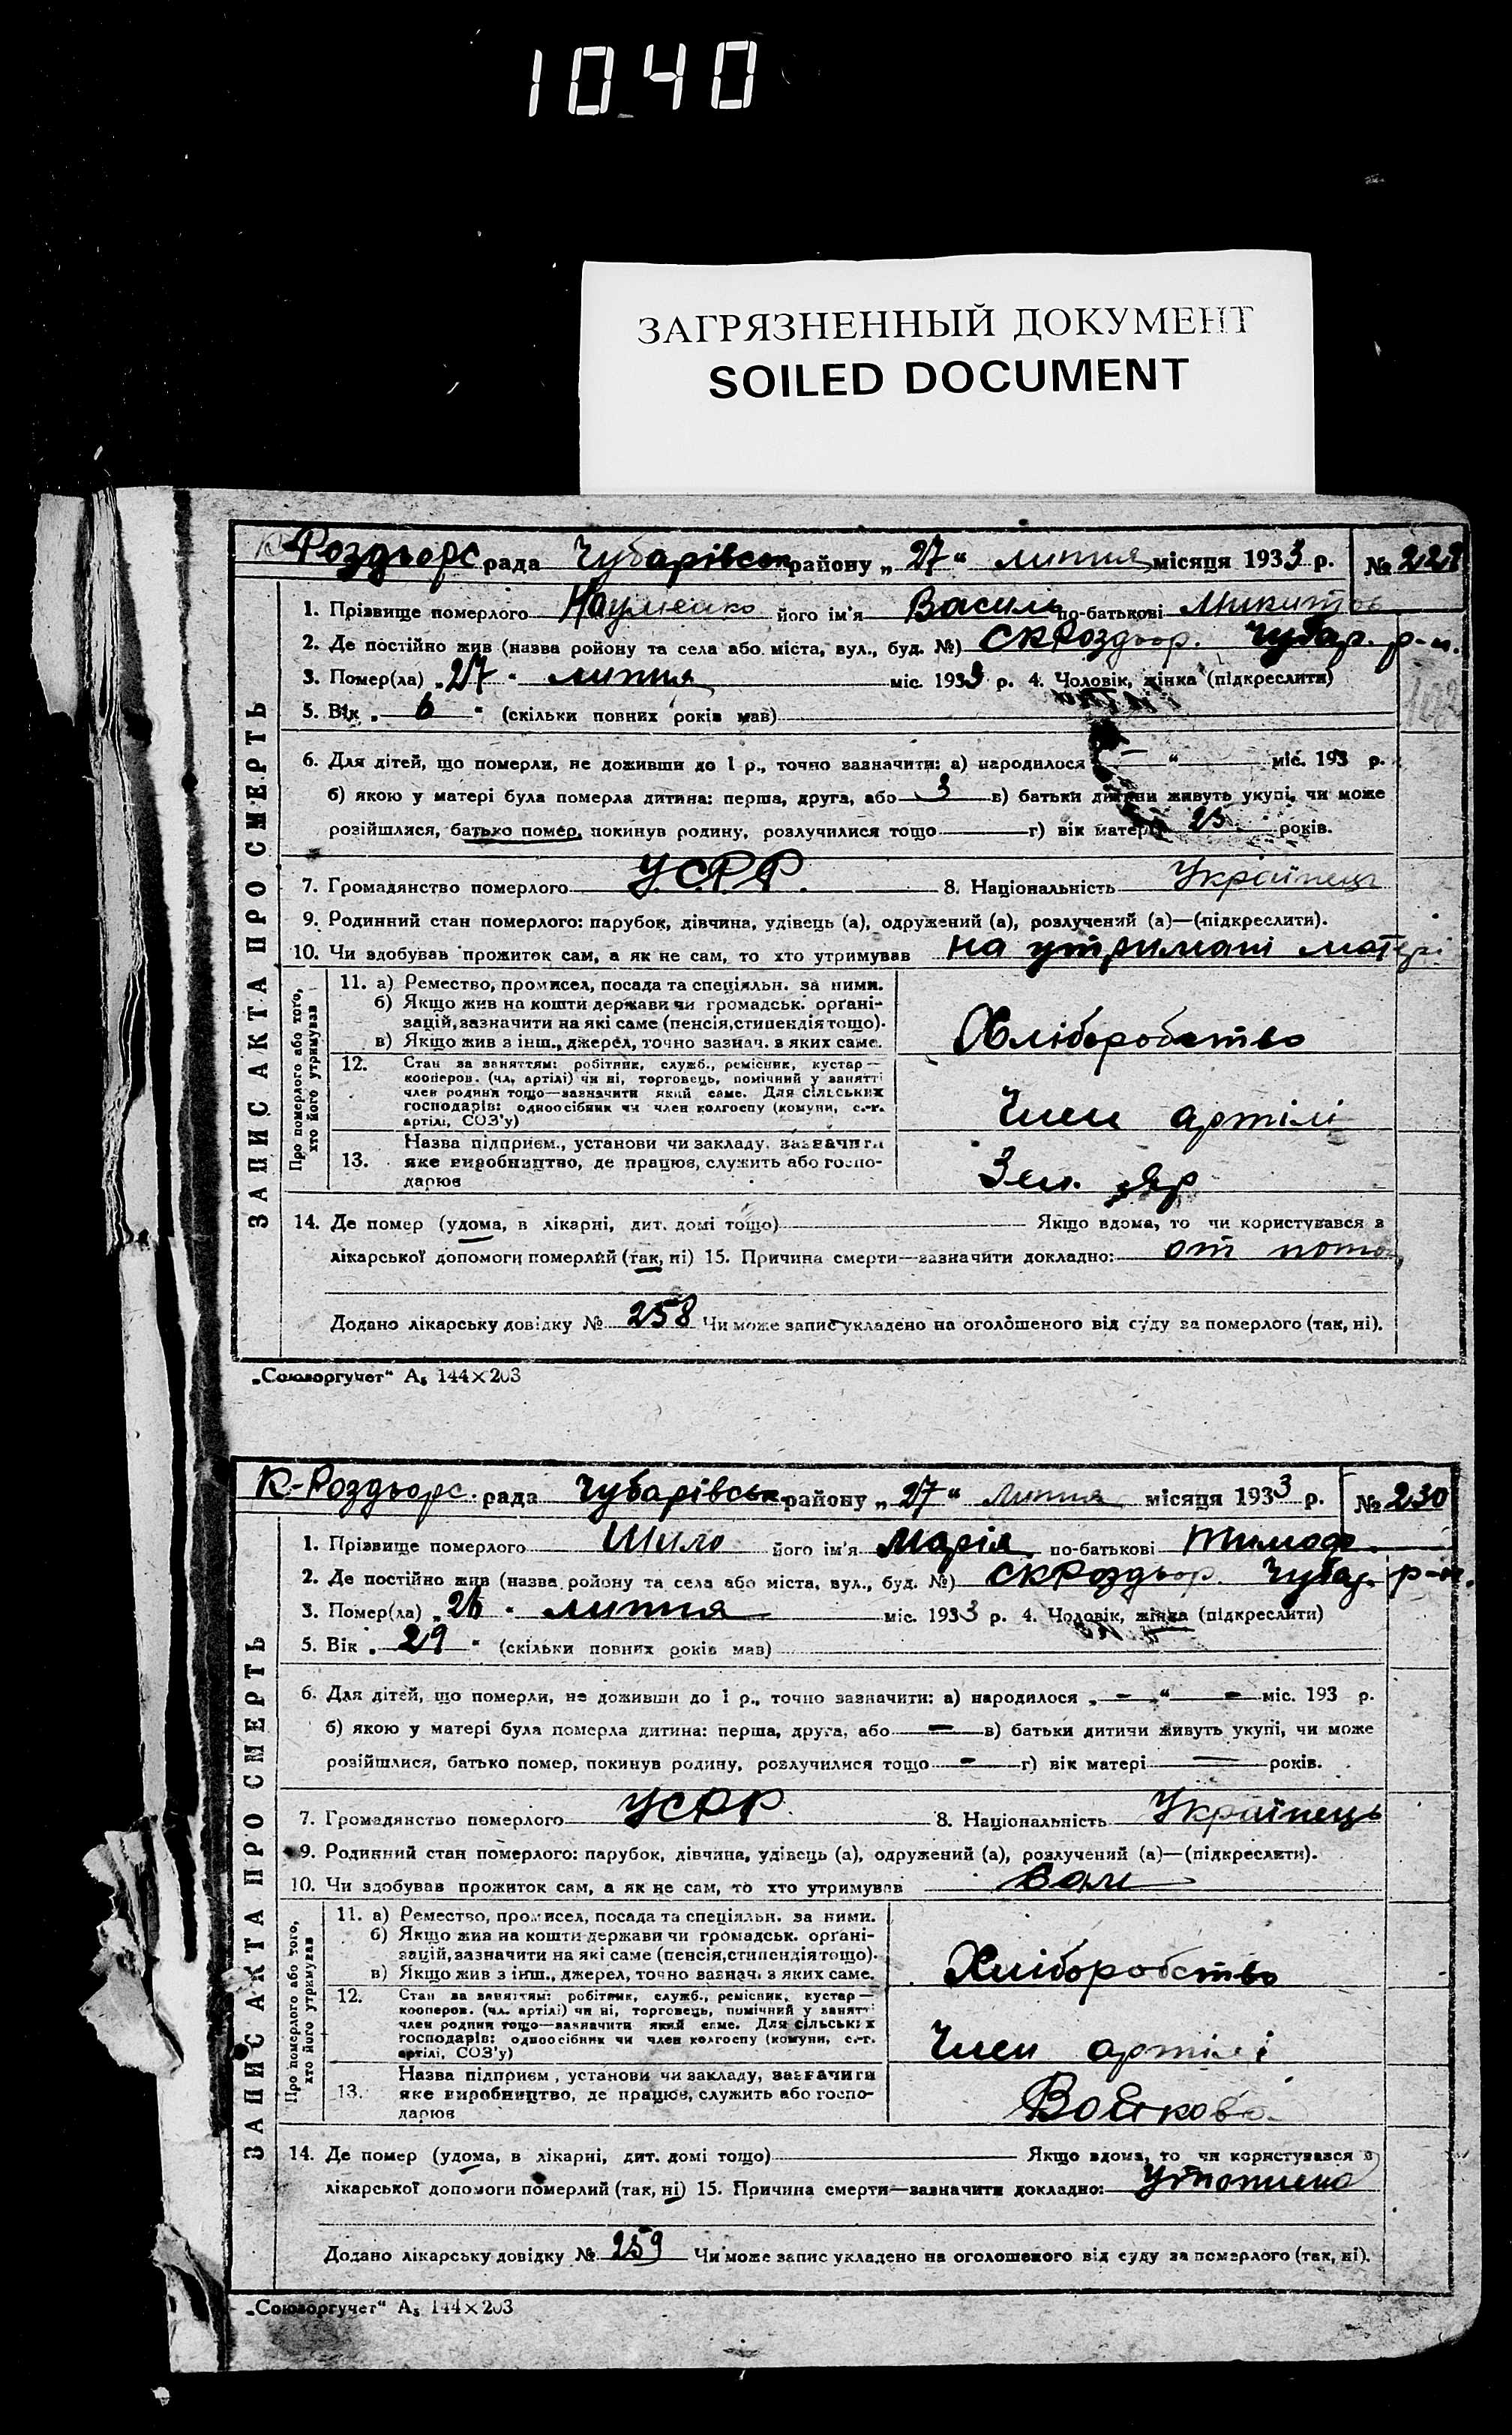 1040
ЗАГРЯЗНЕННЫЙ ДОКУМЕНТ
SOILED DOCUMENT
К-Роздьорс рада Чубарівськ району „27“ липня місяця 1933 р. №
ЗАПИС АКТА ПРО СМЕРТЬ
1. Прізвище померлого Науменко його ім'я Василь по-батькові Микитов
2. Де постійно жив (назва ройону та села або міста, вул., буд. №) СКРоздьор. Чубар. р-н.
3. Помер(ла) „27“ липня міс. 1933 р. 4. Чоловік, жінка (підкреслити)
5. Вік „6“ (скільки повних років мав)
6. Для дітей, що померли, не доживши до 1 р., точно зазначити: а) народилося „—“ міс. 193 р.
б) якою у матері була померла дитина: перша, друга, або 3 в) батьки дитини живуть укупі, чи може
розійшлися, батько помер, покинув родину, розлучилися тощо г) вік матері 25 років.
7. Громадянство померлого УСРР. 8. Національність Українець
9. Родинний стан померлого: парубок, дівчина, удівець (а), одружений (а), розлучений (а)—(підкреслити).
10. Чи здобував прожиток сам, а як не сам, то хто утримував на утримані матері
Про померлого або того, хто його утримував
11. а) Ремество, промисел, посада та спеціяльн. за ними.
б) Якщо жив на кошти держави чи громадськ. органі-
зацій, зазначити на які саме (пенсія, стипендія тощо).
в) Якщо жив з інш., джерел, точно зазнач. з яких саме.
Хліборобство
12. Стан за заняттям: робітник, служб., ремісник, кустар—
кооперов. (чл. артілі) чи ні, торговець, помічний у занятті
член родини тощо—зазначити який саме. Для сільських
господарів: одноосібник чи член колгоспу (комуни, с.-г.
артілі, СОЗ'у)
Член артілі
Назва підприєм., установи чи закладу, зазначити
13. яке виробництво, де працює, служить або госпо-
дарює
Зел. Яр
14. Де помер (удома, в лікарні, дит. домі тощо) Якщо вдома, то чи користувався з
лікарської допомоги померлий (так, ні) 15. Причина смерти—зазначити докладно: от
Додано лікарську довідку № 258 Чи може запис укладено на оголошеного від суду за померлого (так, ні).
„Союзоргучет“ А₅ 144×203
К-Роздьорс. рада Чубарівськ району „27“ липня місяця 1933 р. № 230
ЗАПИС АКТА ПРО СМЕРТЬ
1. Прізвище померлого Шило його ім'я Марія по-батькові Тимоф.
2. Де постійно жив (назва ройону та села або міста, вул., буд. №) СКРоздьор. Чубар. р-н.
3. Помер(ла) „26“ липня міс. 1933 р. 4. Чоловік, жінка (підкреслити)
5. Вік „29“ (скільки повних років мав)
6. Для дітей, що померли, не доживши до 1 р., точно зазначити: а) народилося „—“ — міс. 193 р.
б) якою у матері була померла дитина: перша, друга, або — в) батьки дитини живуть укупі, чи може
розійшлися, батько помер, покинув родину, розлучилися тощо — г) вік матері — років.
7. Громадянство померлого УСРР. 8. Національність Українець
9. Родинний стан померлого: парубок, дівчина, удівець (а), одружений (а), розлучений (а)—(підкреслити).
10. Чи здобував прожиток сам, а як не сам, то хто утримував
Про померлого або того, хто його утримував
11. а) Ремество, промисел, посада та спеціяльн. за ними.
б) Якщо жив на кошти держави чи громадськ. органі-
зацій, зазначити на які саме (пенсія, стипендія тощо).
в) Якщо жив з інш., джерел, точно зазнач. з яких саме.
Хліборобство
12. Стан за заняттям: робітник, служб., ремісник, кустар—
кооперов. (чл. артілі) чи ні, торговець, помічний у занятті
член родини тощо—зазначити який саме. Для сільських
господарів: одноосібник чи член колгоспу (комуни, с.-г.
артілі, СОЗ'у)
Член артілі
Назва підприєм., установи чи закладу, зазначити
13. яке виробництво, де працює, служить або госпо-
дарює
14. Де помер (удома, в лікарні, дит. домі тощо) Якщо вдома, то чи користувався з
лікарської допомоги померлий (так, ні) 15. Причина смерти—зазначити докладно: Утоплено
Додано лікарську довідку № 259 Чи може запис укладено на оголошеного від суду за померлого (так, ні).
„Союзоргучет“ А₅ 144×203